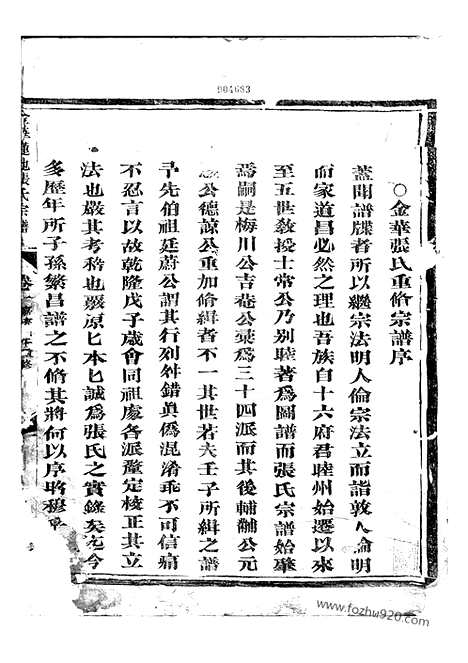 904683
○金華張氏重脩宗譜序
蓋聞譜牒者所以繼宗法明人倫宗法立而誼敦人倫明
而家道昌必然之理也吾族自十六府君睦州始遷以來
至五世教授士常公乃別睦著為圖譜而張氏宗譜始肇
焉嗣是梅川公吉菴公槩為三十四派而其後輔黼公元
公德諒公重加脩緝者不一其世若夫壬子所緝之譜
予先伯祖廷蔚公謂其行列舛錯真偽混淆乖不可信痛
不忍言以故乾隆戊子歲會同祖處各派釐定校正其立
法也嚴其考稽也覈原匕本匕誠為張氏之實錄矣迄今
多歷年所子孫繁昌譜之不脩其將何以序昭穆
金華蓮池張氏宗譜
卷
www.fozhu920.com